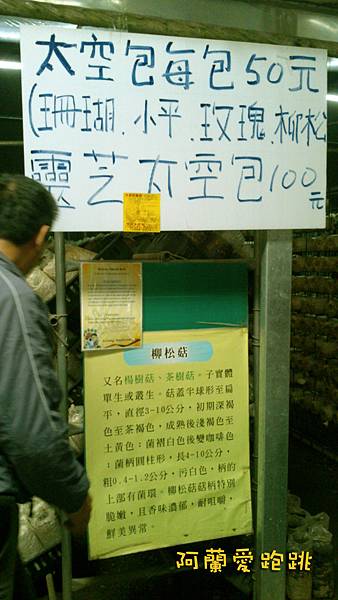 太空包每包50元
(珊瑚、小平、玫瑰、柳松
靈芝太空包100元
柳松菇
又名楊樹菇、茶樹菇。子實體
單生或叢生。菇蓋半球形至扁
平，直徑3-10公分，初期深褐
色至茶褐色，成熟後淺褐色至
土黃色；菌褶白色後變咖啡色
；菌柄圓柱形，長4-10公分，
粗0.4-1.2公分，污白色，柄的
上部有菌環。柳松菇菇柄特別
脆嫩，且香味濃郁，耐咀嚼，
鮮美異常。
阿蘭愛跑跳